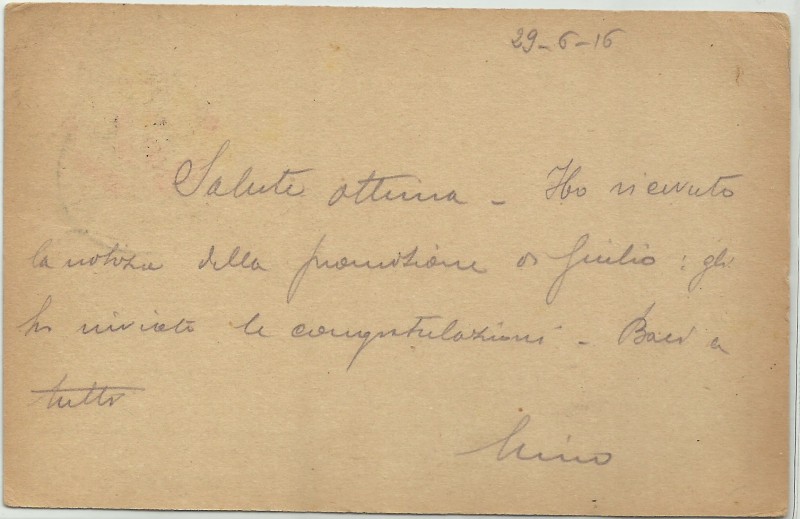 29-6-16
Salute ottima - Ho ricevuto
la notizia della promozione di Giulio: gli
ho inviato le congratulazioni - Baci a
tutti
Nino